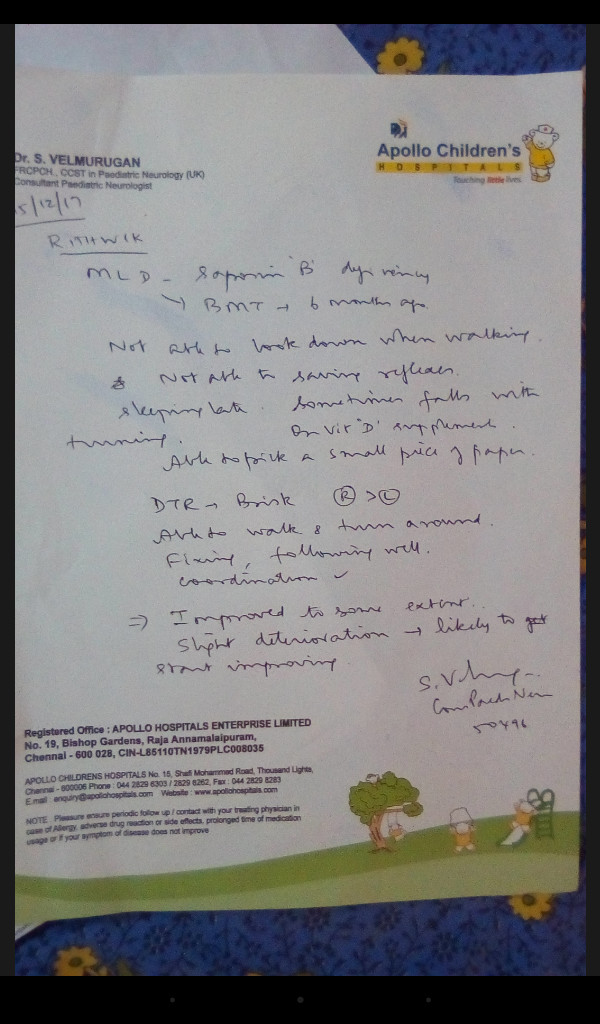 Dr. S. VELMURUGAN
FRCPCH., CCST in Paediatric Neurology (UK)
Consultant Paediatric Neurologist
Apollo Children's
HOSPITALS
Touching little lives
15/12/17
RITHWIK
MLD - Saposin 'B' deficiency
→ BMT → 6 months ago.
Not able to look down when walking.
Not able to saving reflexes.
sleeping late. Sometimes falls with
turning. On Vit 'D' supplement.
Able to pick a small piece of paper.
DTR → Brisk Ⓡ > Ⓛ
Able to walk & turn around.
Fixing, following well.
coordination ✓
⇒ Improved to some extent..
Slight deterioration → likely to
start improving.
50496
Registered Office : APOLLO HOSPITALS ENTERPRISE LIMITED
No. 19, Bishop Gardens, Raja Annamalaipuram,
Chennai - 600 028, CIN-L85110TN1979PLC008035
APOLLO CHILDRENS HOSPITALS No. 15, Shafi Mohammed Road, Thousand Lights,
Chennai - 600006 Phone : 044 2829 6303 / 2829 6262, Fax : 044 2829 8283
E.mail enquiry@apollohospitals.com Website : www.apollohospitals.com
NOTE Pleasure ensure periodic follow up / contact with your treating physician in
case of Allergy, adverse drug reaction or side effects, prolonged time of medication
usage or if your symptom of disease does not improve